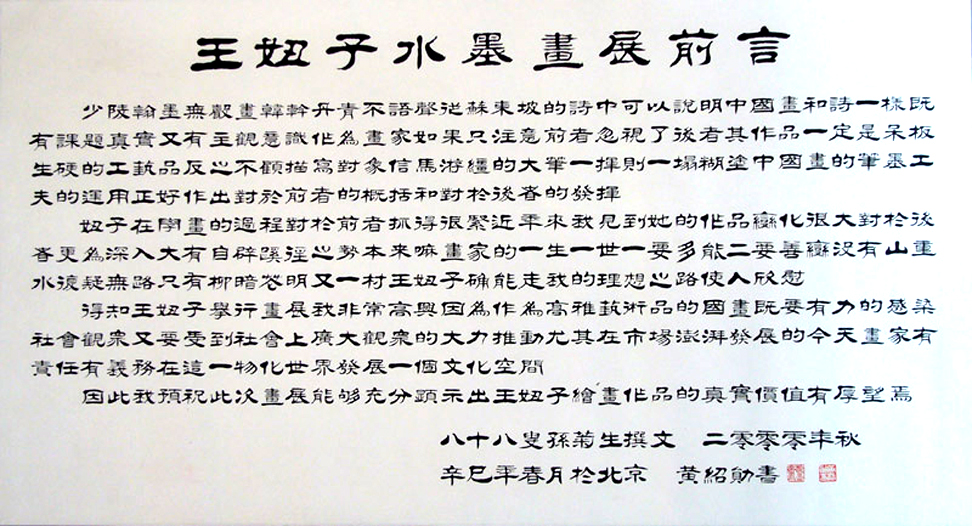 王妞子水墨畫展前言
少陵翰墨無聲畫韓幹丹青不語聲從蘇東坡的詩中可以說明中國畫和詩一樣既
有課題真實又有主觀意識作為畫家如果只注意前者忽視了後者其作品一定是呆板
生硬的工藝品反之不顧描寫對象信馬游繮的大筆一揮則一塌糊塗中國畫的筆墨工
夫的運用正好作出對於前者的概括和對於後者的發揮
妞子在學畫的過程對於前者抓得很緊近年來我見到她的作品變化很大對於後
者更為深入大有自辟蹊徑之勢本來嘛畫家的一生一世一要多能二要善變沒有山重
水複疑無路只有柳暗花明又一村王妞子确能走我的理想之路使人欣慰
得知王妞子舉行畫展我非常高興因為作為高雅藝術品的國畫既要有力的感染
社會觀眾又要受到社會上廣大觀眾的大力推動尤其在市場澎湃發展的今天畫家有
責任有義務在這一物化世界發展一個文化空間
因此我預祝此次畫展能够充分顯示出王妞子繪畫作品的真實價值有厚望焉
八十八叟孫菊生撰文 二零零零年秋
辛巳年春月於北京 黃紹勛書